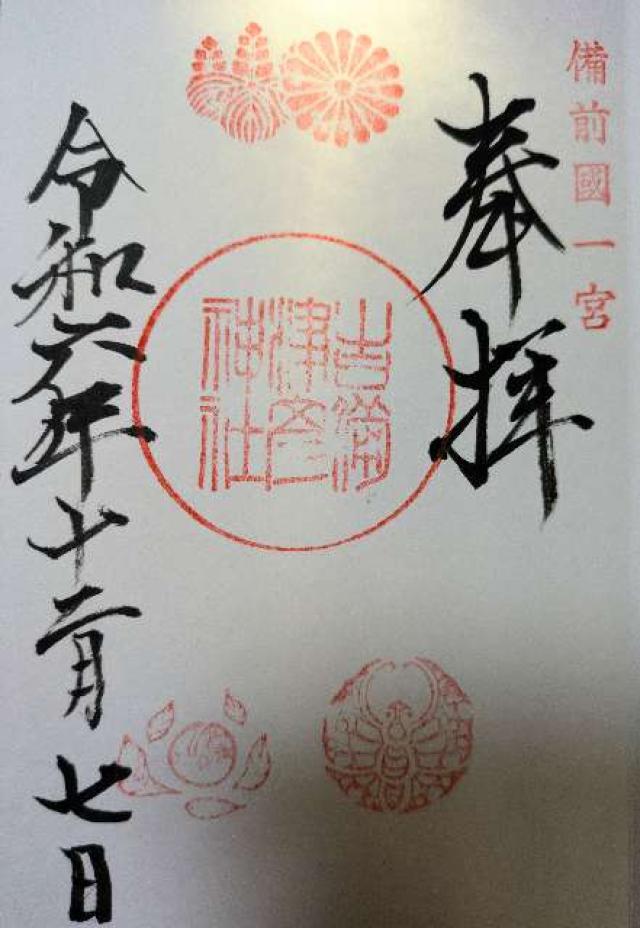 備前國一宮
奉拝
吉備
津彦
神社
令和六年十二月七日